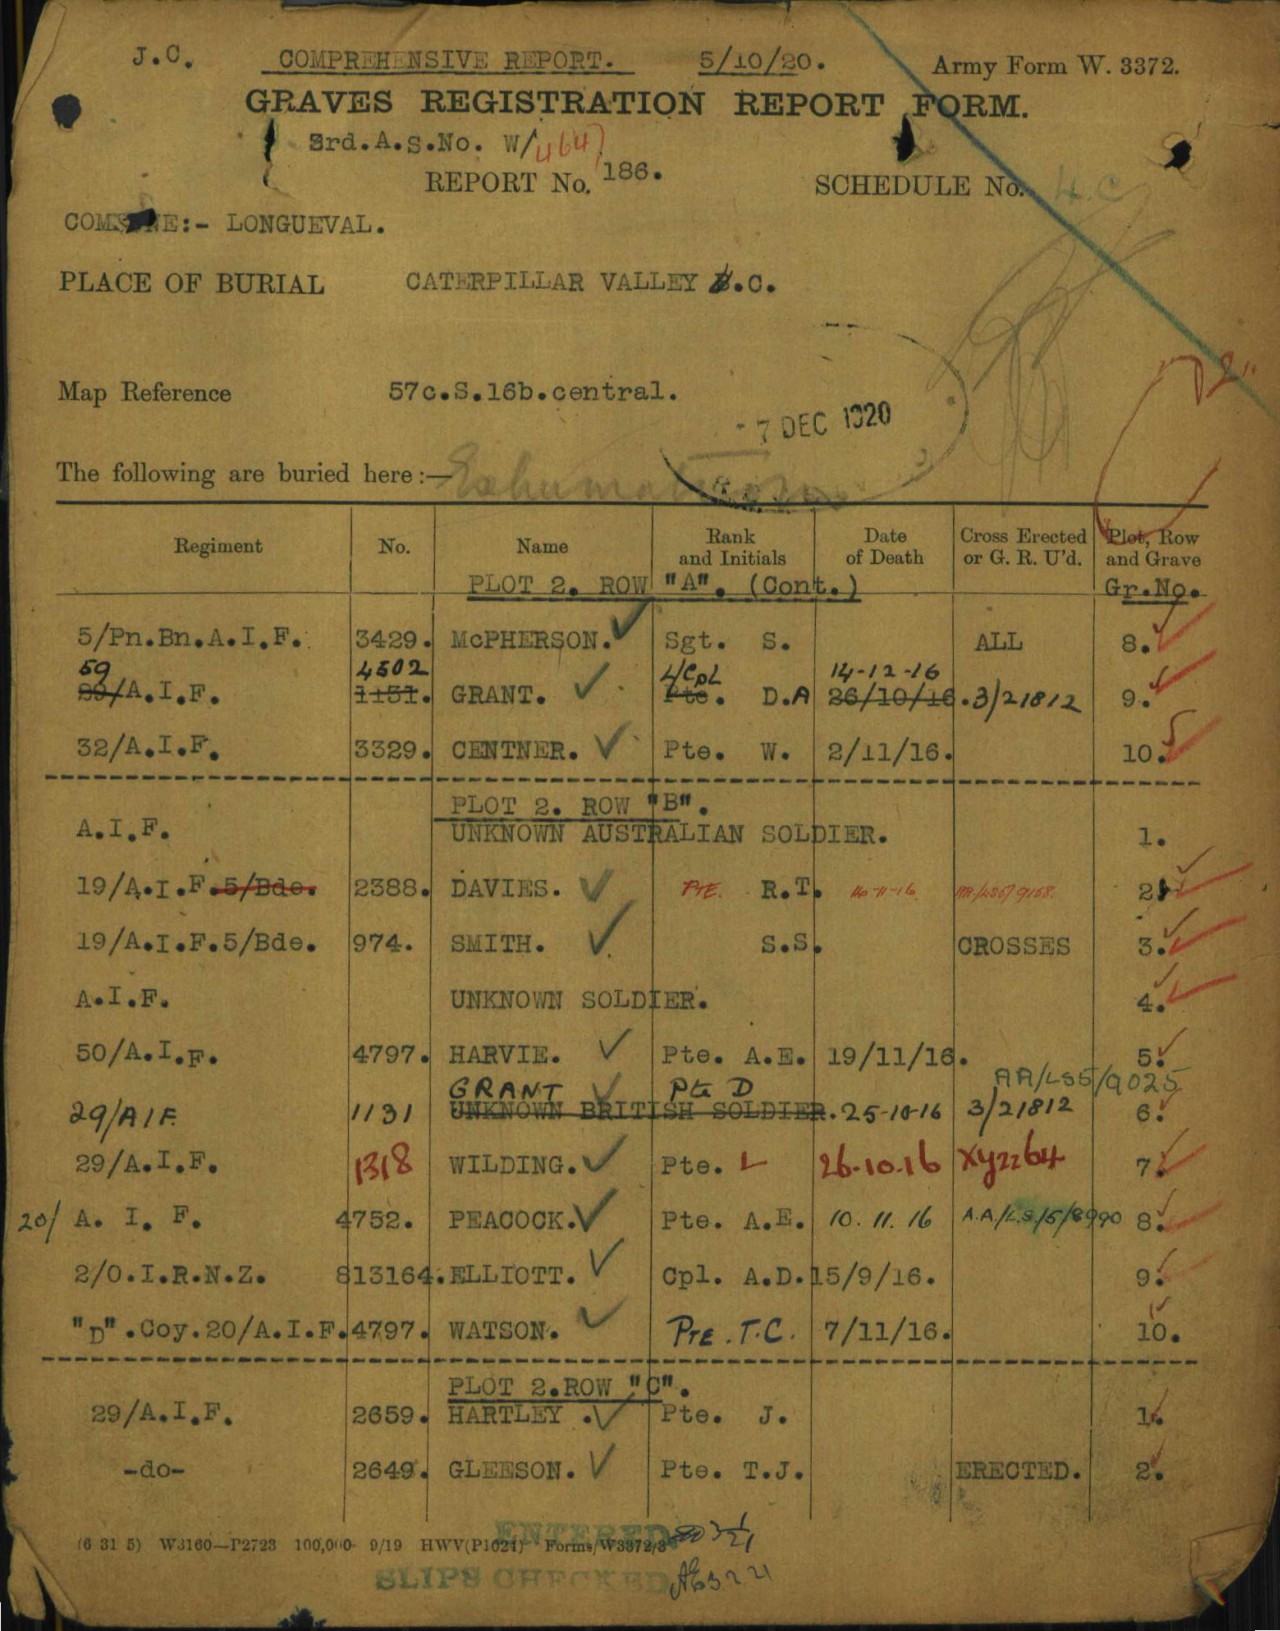 J.C. COMPREHENSIVE REPORT. 5/10/20. Army Form W. 3372.
GRAVES REGISTRATION REPORT FORM.
3rd.A.S.No. W/464
REPORT No. 186. SCHEDULE No. 4.C
LONGUEVAL.
PLACE OF BURIAL CATERPILLAR VALLEY B.C.
Map Reference 57c.S.16b.central.
-7 DEC 1920
The following are buried here:— Exhumation
Regiment No. Name Rank and Initials Date of Death Cross Erected or G. R. U'd. Plot, Row and Grave
PLOT 2. ROW "A". (Cont.) Gr.No.
5/Pn.Bn.A.I.F. 3429. McPHERSON. Sgt. S. ALL 8.
59 4502 L/Cpl 14-12-16
29/A.I.F. 1131. GRANT. Pte. D.A 26/10/16. 3/21812 9.
32/A.I.F. 3329. CENTNER. Pte. W. 2/11/16. 10.
PLOT 2. ROW "B".
A.I.F. UNKNOWN AUSTRALIAN SOLDIER. 1.
19/A.I.F.5/Bde. 2388. DAVIES. Pte. R.T. 2.
19/A.I.F.5/Bde. 974. SMITH. S.S. CROSSES 3.
A.I.F. UNKNOWN SOLDIER. 4.
50/A.I.F. 4797. HARVIE. Pte. A.E. 19/11/16. 5.
GRANT Pte D AA/LS5/9025
29/AIF. 1131 UNKNOWN BRITISH SOLDIER. 25-10-16 3/21812 6.
29/A.I.F. 1318 WILDING. Pte. L 26.10.16 Xy2264 7.
20/ A. I. F. 4752. PEACOCK. Pte. A.E. 10. 11. 16 A.A/L.S/5/8990 8.
2/O.I.R.N.Z. 813164. ELLIOTT. Cpl. A.D. 15/9/16. 9.
"D".Coy.20/A.I.F. 4797. WATSON. Pte. T.C. 7/11/16. 10.
PLOT 2.ROW "C".
29/A.I.F. 2659. HARTLEY. Pte. J. 1.
-do- 2649. GLEESON. Pte. T.J. ERECTED. 2.
ENTERED
(6 31 5) W3160—P2723 100,000 9/19 HWV(P1021) Forms/W3372/3
SLIPS CHECKED